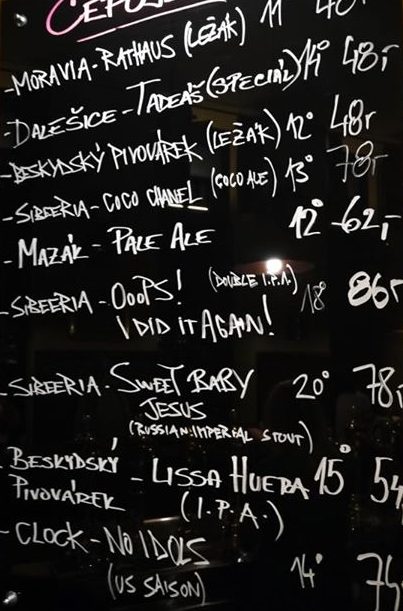 -MORAVIA-RATHAUS (LEŽÁK) 11
-DALEŠICE-TADEÁŠ (SPECIÁL) 14° 48,-
-BESKYDSKÝ PIVOVÁREK (LEŽÁK) 12° 48,-
-SIBEERIA-COCO CHANEL (COCO ALE) 13° 78,-
-MAZÁK-PALE ALE 12° 62,-
-SIBEERIA-OOOPS! (DOUBLE I.P.A.) 18° 86,-
I DID IT AGAIN!
-SIBEERIA-SWEET BABY 20° 78,-
JESUS
(RUSSIAN IMPERIAL STOUT)
-BESKYDSKÝ - LISSA HUERA 15° 54
PIVOVÁREK (I.P.A.)
-CLOCK-NO IDOLS
(US SAISON) 14°